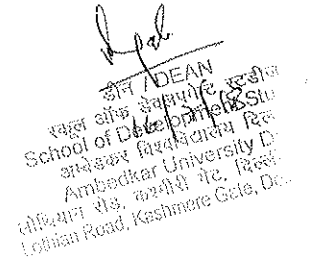 डीन / DEAN
स्कूल ऑफ डेवलपमेंट स्टडीज
School of Development Stu
अम्बेडकर विश्वविद्यालय दिल
Ambedkar University D
लोथियान रोड, कश्मीरी गेट, दिल्ली
Lothian Road, Kashmere Gate, De